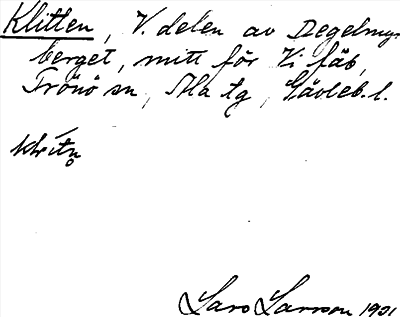 Klitten, V. delen av Degelmyr
berget, mitt för Vi fäb,
Trönö sn, Ala tg, Gävleb. l.
Lars Larsson 1931